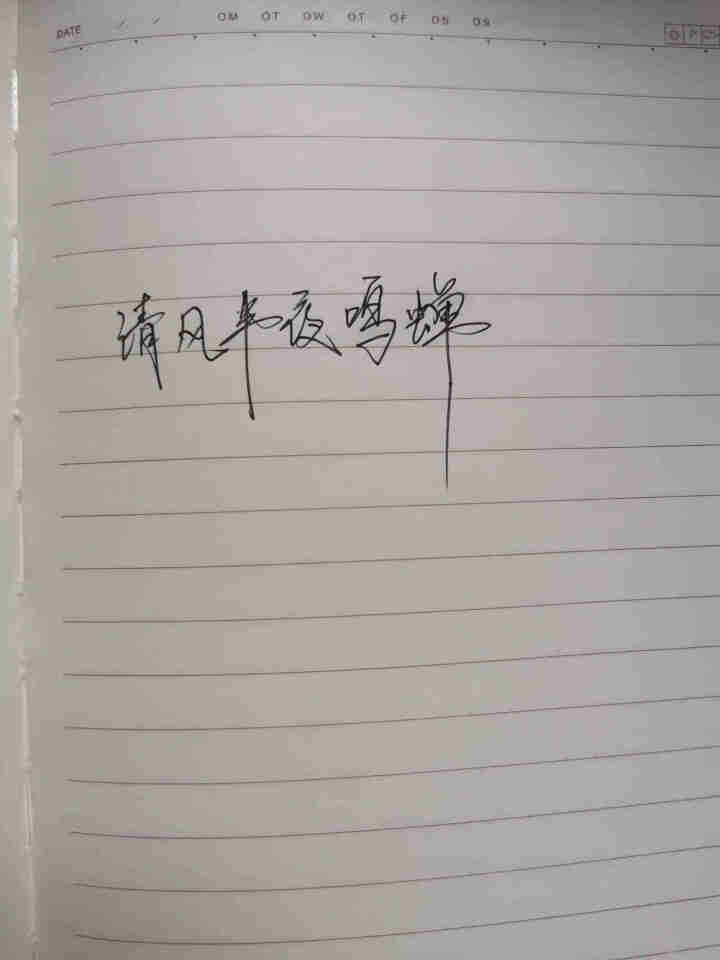 DATE / / OM OT OW OT OF OS OS
清风半夜鸣蝉